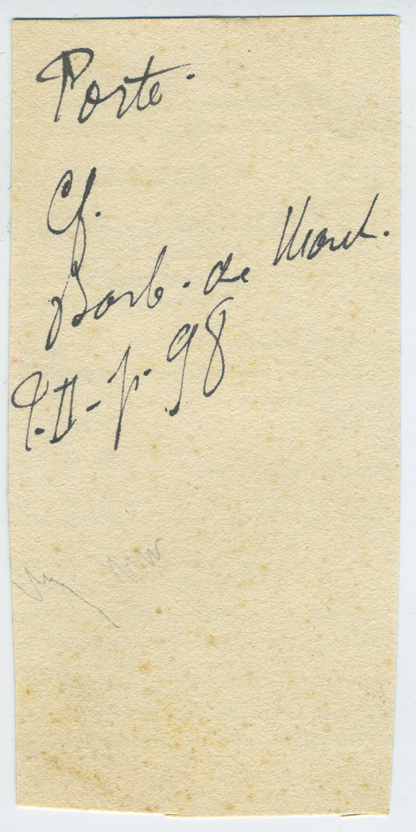 Porte.
Cf.
Barb. de Mont.
T.II-p. 98